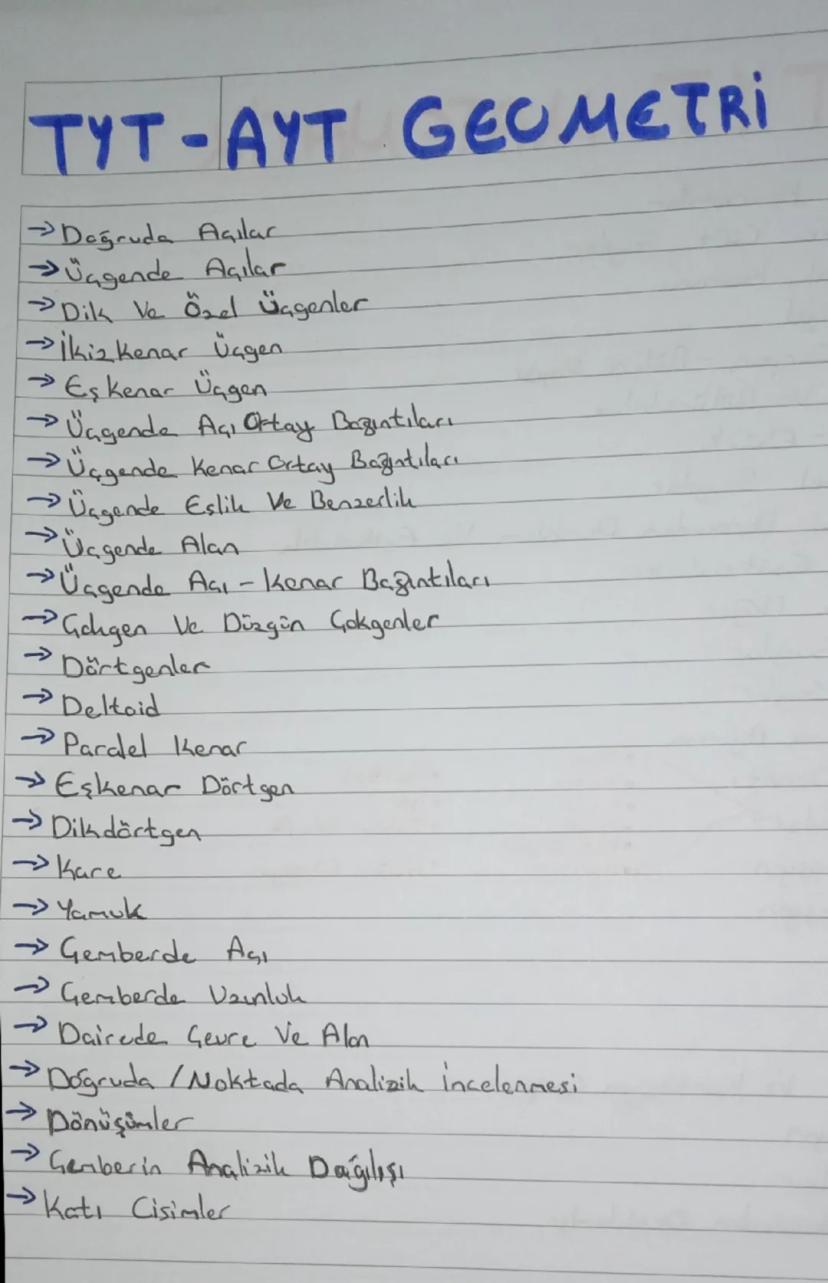 TYT-AYT GEOMETRİ
→ Doğruda Açılar
→ Üçgende Açılar
→ Dik Ve Özel Üçgenler
→ İkizkenar Üçgen
→ Eşkenar Üçgen
→ Üçgende Açı Ortay Bağıntıları
→ Üçgende Kenar Ortay Bağıntıları
→ Üçgende Eşlik Ve Benzerlik
→ Üçgende Alan
→ Üçgende Açı-Kenar Bağıntıları
→ Çokgen Ve Düzgün Çokgenler
→ Dörtgenler
→ Deltoid
→ Paralel Kenar
→ Eşkenar Dörtgen
→ Dikdörtgen
→ Kare
→ Yamuk
→ Çemberde Açı
→ Çemberde Uzunluk
→ Dairede Çevre Ve Alan
→ Doğruda /Noktada Analizik İncelenmesi
→ Dönüşümler
→ Çemberin Analizik Dağılışı
→ Katı Cisimler